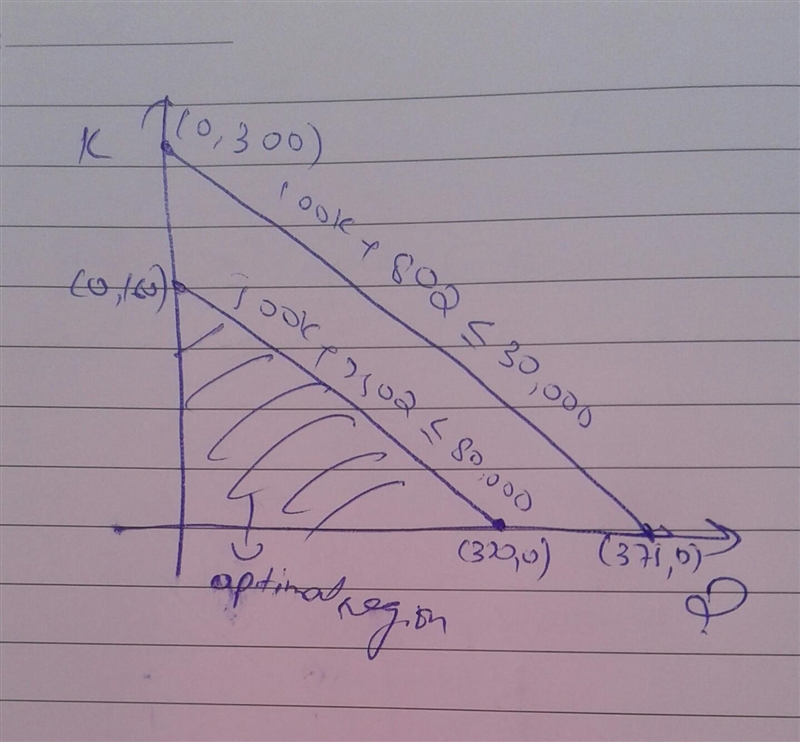 K
(0,300)
100K + 80Q ≤ 30,000
(0,160)
500K + 250Q ≤ 80,000
(320,0)
(371,0)
Q
optimal region